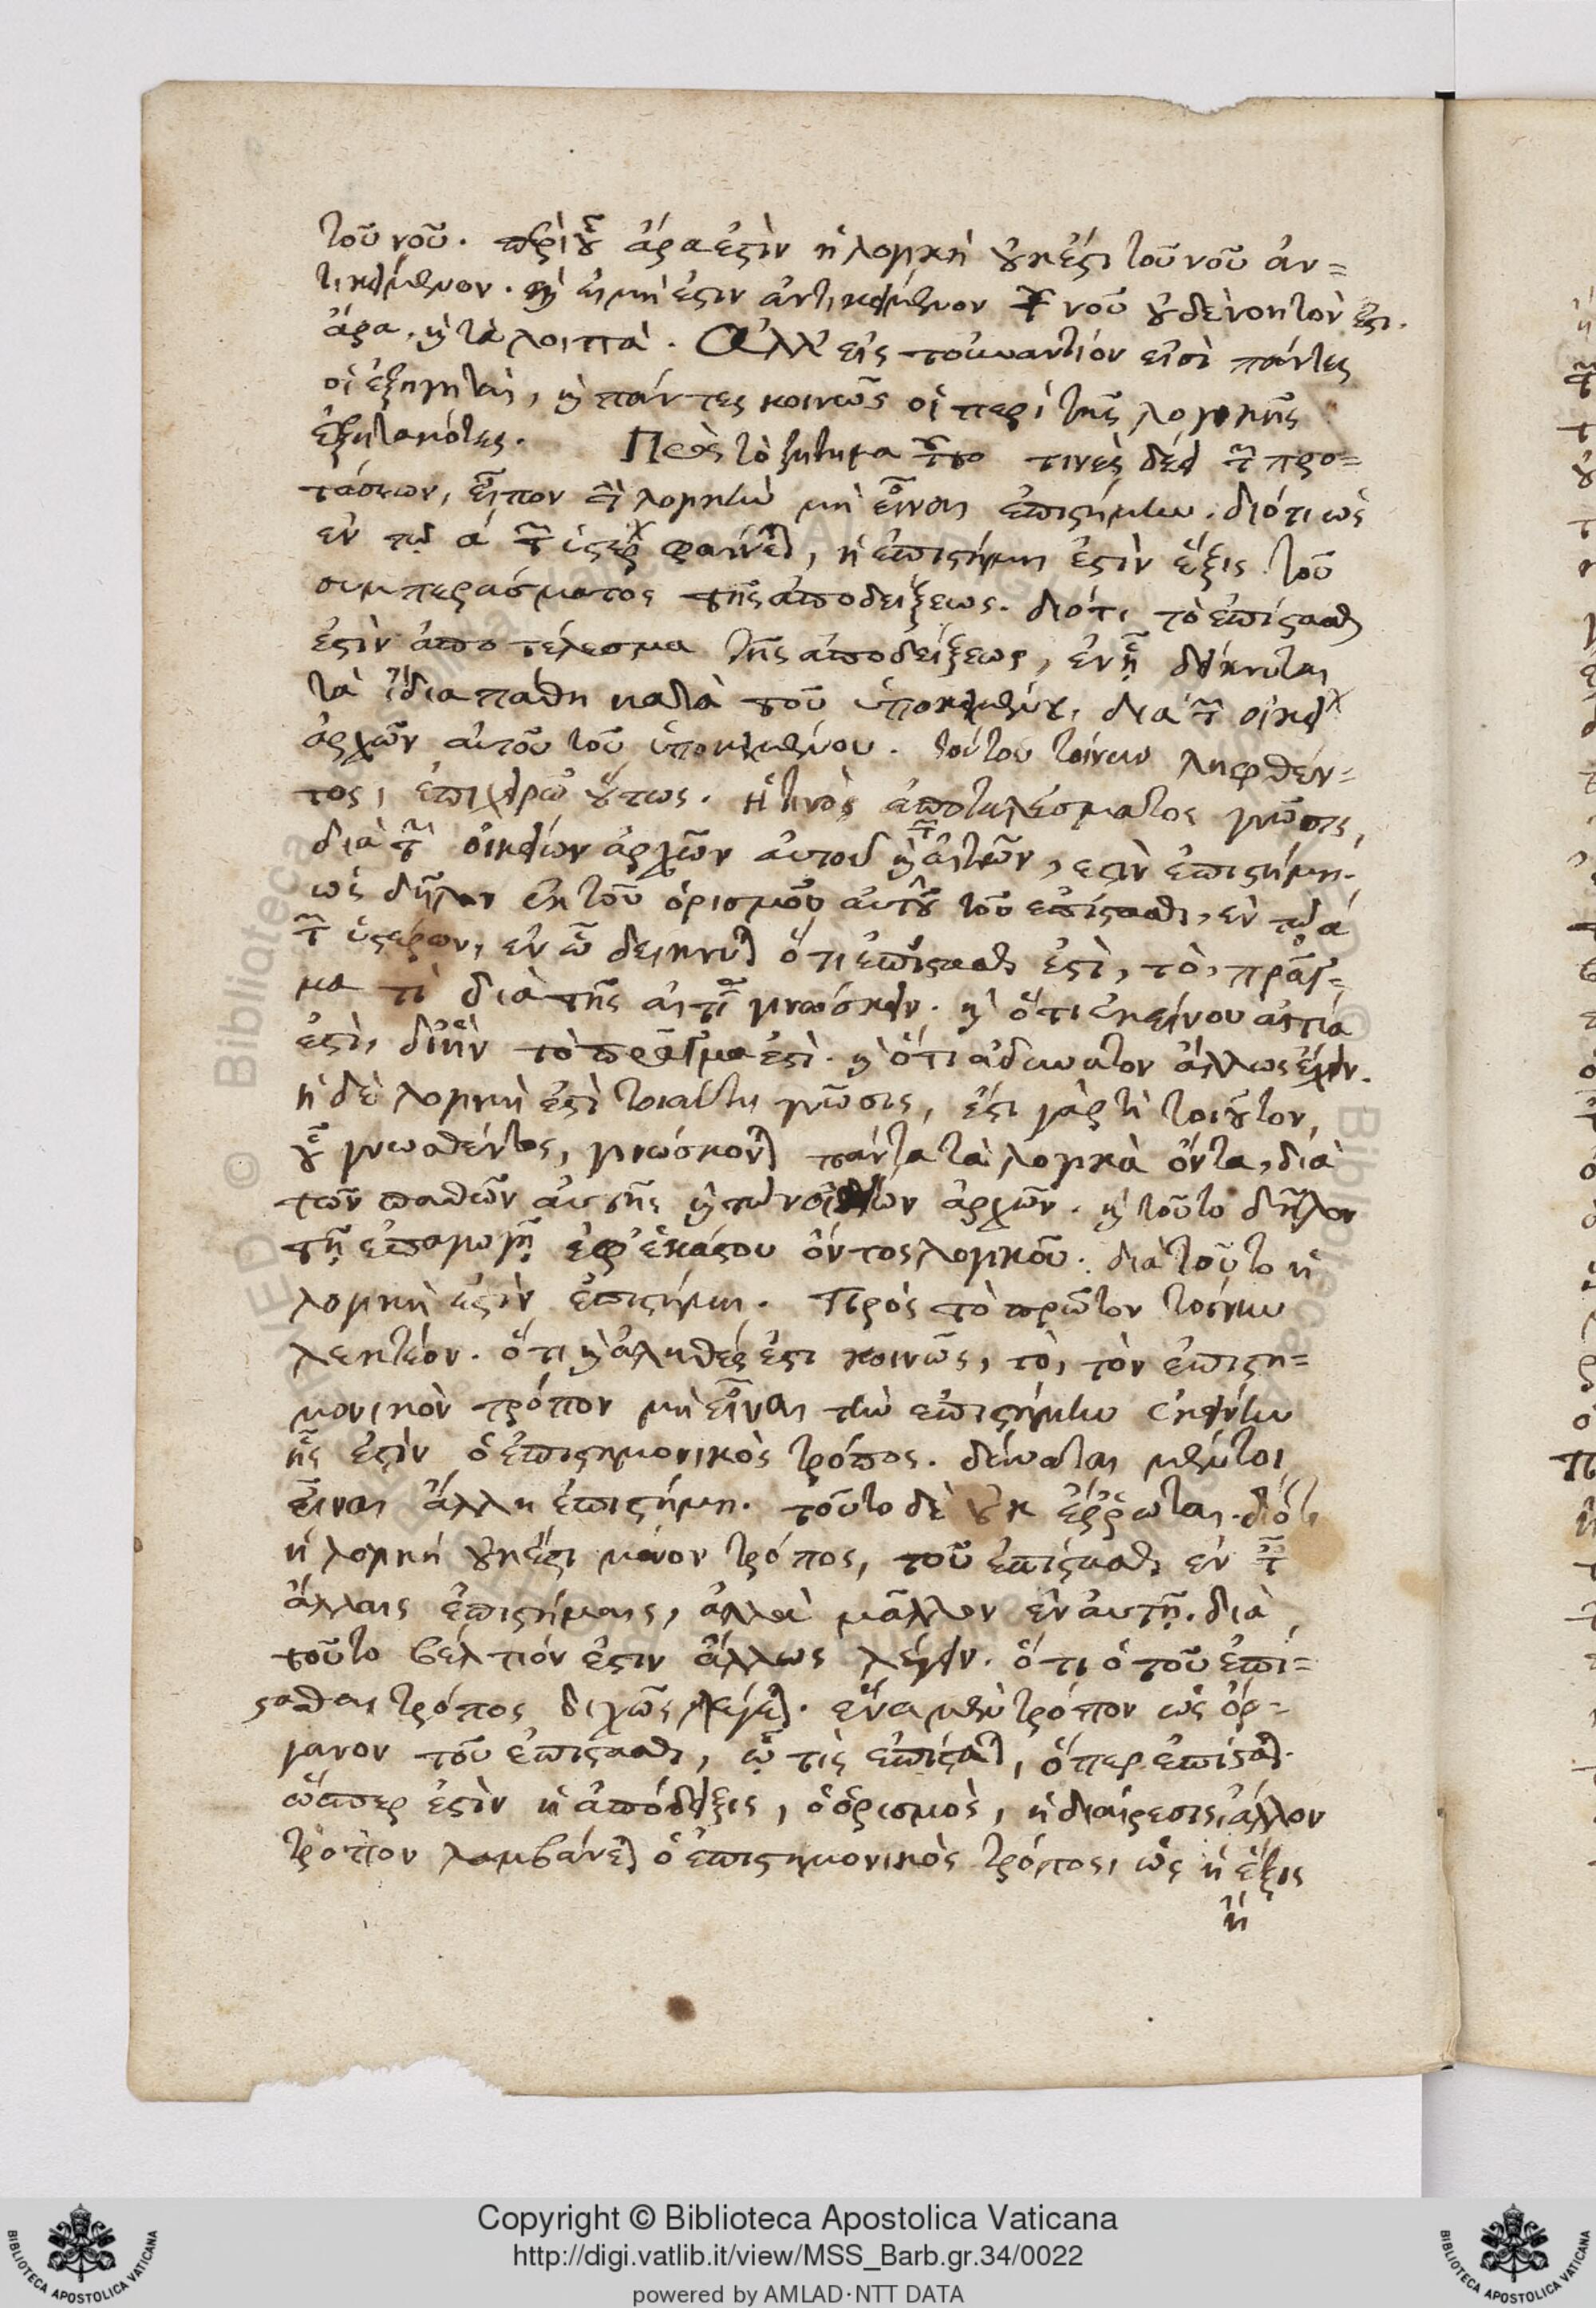 τοῦ νοῦ. περὶ οὗ ἄρα ἐστὶν ἡ λογικὴ οὐκ ἔστι τοῦ νοῦ ἀν=
τικείμενον. καὶ εἰ μὴ ἔστιν ἀντικείμενον τοῦ νοῦ οὐδὲ νοητὸν ἔστι.
ἄρα, καὶ τὰ λοιπὰ. Ἀλλ' εἰς τοὐναντίον εἰσὶ πάντες
οἱ ἐξηγηταὶ, καὶ πάντες κοινῶς οἱ περὶ τῆς λογικῆς
ἐξητακότες. Πρὸς τὸ ζήτημα τοῦτο τινὲς διὰ τῶν προ=
τάσεων, εἶπον τὴν λογικὴν μὴ εἶναι ἐπιστήμην. διότι ὡς
ἐν τῷ α τῶν ὑστέρων φαίνεται, ἡ ἐπιστήμη ἐστὶν ἕξις τοῦ
συμπεράσματος τῆς ἀποδείξεως. διότι τὸ ἐπίστασθαι
ἐστὶν ἀποτέλεσμα τῆς ἀποδείξεως, ἐν ᾗ δείκνυται
τὰ ἴδια πάθη κατὰ τοῦ ὑποκειμένου, διὰ τῶν οἰκείων
ἀρχῶν αὐτοῦ τοῦ ὑποκειμένου. τούτου τοίνυν ληφθέν=
τος, ἐπιχειρῶ οὕτως. ἡ τινὸς ἀποτελέσματος γνῶσις,
διὰ τῶν οἰκείων ἀρχῶν αὐτοῦ καὶ τῶν αἰτιῶν, ἐστὶν ἐπιστήμη.
ὡς δῆλον ἐκ τοῦ ὁρισμοῦ αὐτοῦ τοῦ ἐπίστασθαι, ἐν τῷ α
τῶν ὑστέρων, ἐν ᾧ δείκνυται ὅτι ἐπίστασθαι ἐστὶ, τὸ, πρᾶγ=
μα τὶ διὰ τῆς αἰτίας γινώσκειν. καὶ ὅτι ἐκείνου αἰτία
ἐστὶ, δι' ἣν τὸ πρᾶγμα ἐστὶ. καὶ ὅτι ἀδύνατον ἄλλως ἔχειν.
ἡ δὲ λογικὴ ἐστὶ τοιαύτη γνῶσις, ἔστι γὰρ τὶ τοιοῦτον,
οὗ γνωσθέντος, γινώσκονται πάντα τὰ λογικὰ ὄντα, διὰ
τῶν παθῶν αὐτῆς καὶ τῶν οἰκείων ἀρχῶν. καὶ τοῦτο δῆλον
τῇ ἐπαγωγῇ ἐφ' ἑκάστου ὄντος λογικοῦ. διὰ τοῦτο ἡ
λογικὴ ἐστὶν ἐπιστήμη. Πρὸς τὸ πρῶτον τοίνυν
λεκτέον. ὅτι καὶ ἀληθές ἐστι κοινῶς, τὸ, τὸν ἐπιστη=
μονικὸν τρόπον μὴ εἶναι τὴν ἐπιστήμην ἐκείνην
ἧς ἐστὶν ὁ ἐπιστημονικὸς τρόπος. δύναται μέντοι
εἶναι ἄλλη ἐπιστήμη. τοῦτο δὲ οὐκ ἔῤῥωται. διότι
ἡ λογικὴ οὐκ ἔστι μόνον τρόπος, τοῦ ἐπίστασθαι ἐν ταῖς
ἄλλαις ἐπιστήμαις, ἀλλὰ μᾶλλον ἐν αὐτῇ. διὰ
τοῦτο βέλτιόν ἐστιν ἄλλως λέγειν. ὅτι ὁ τοῦ ἐπί=
στασθαι τρόπος διχῶς λέγεται. ἕνα μὲν τρόπον ὡς ὄρ=
γανον τοῦ ἐπίστασθαι, ᾧ τὶς ἐπίσταται, ὅπερ ἐπίσταται.
ὥσπερ ἐστὶν ἡ ἀπόδειξις, ὁ ὁρισμὸς, ἡ διαίρεσις, ἄλλον
τρόπον λαμβάνεται ὁ ἐπιστημονικὸς τρόπος, ὡς ἡ ἕξις
ἡ
Copyright © Biblioteca Apostolica Vaticana
http://digi.vatlib.it/view/MSS_Barb.gr.34/0022
powered by AMLAD·NTT DATA